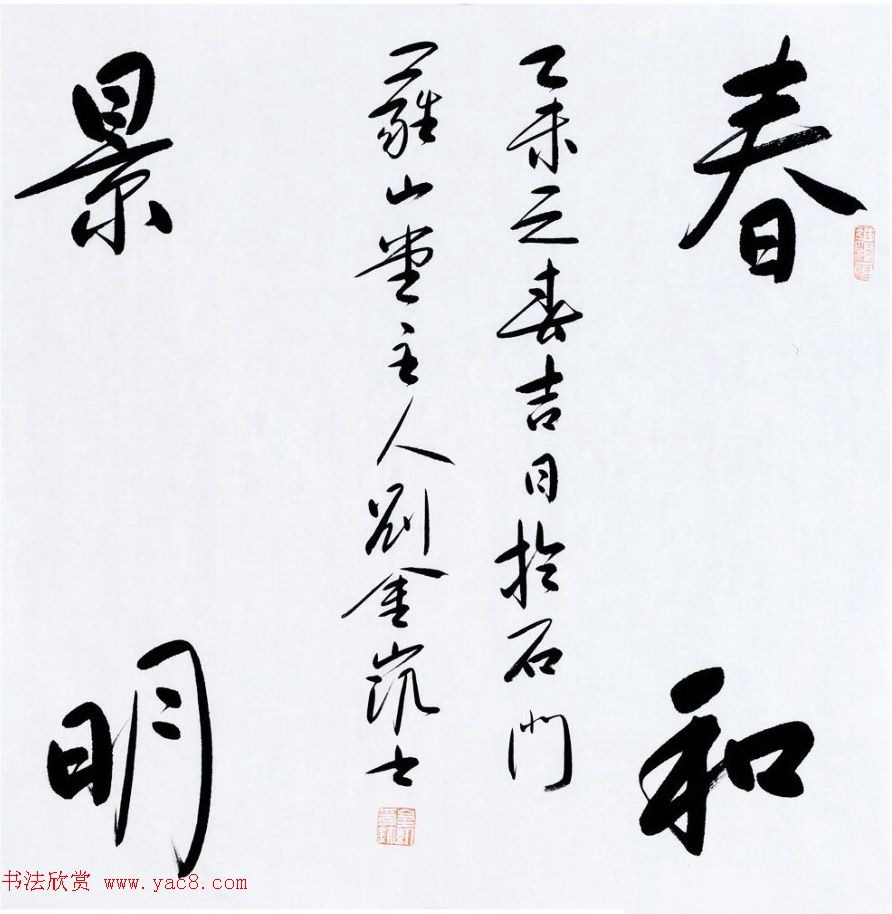 春和
乙未之春吉日於石門
羅山堂主人劉金凱
景明
书法欣赏 www.yac8.com